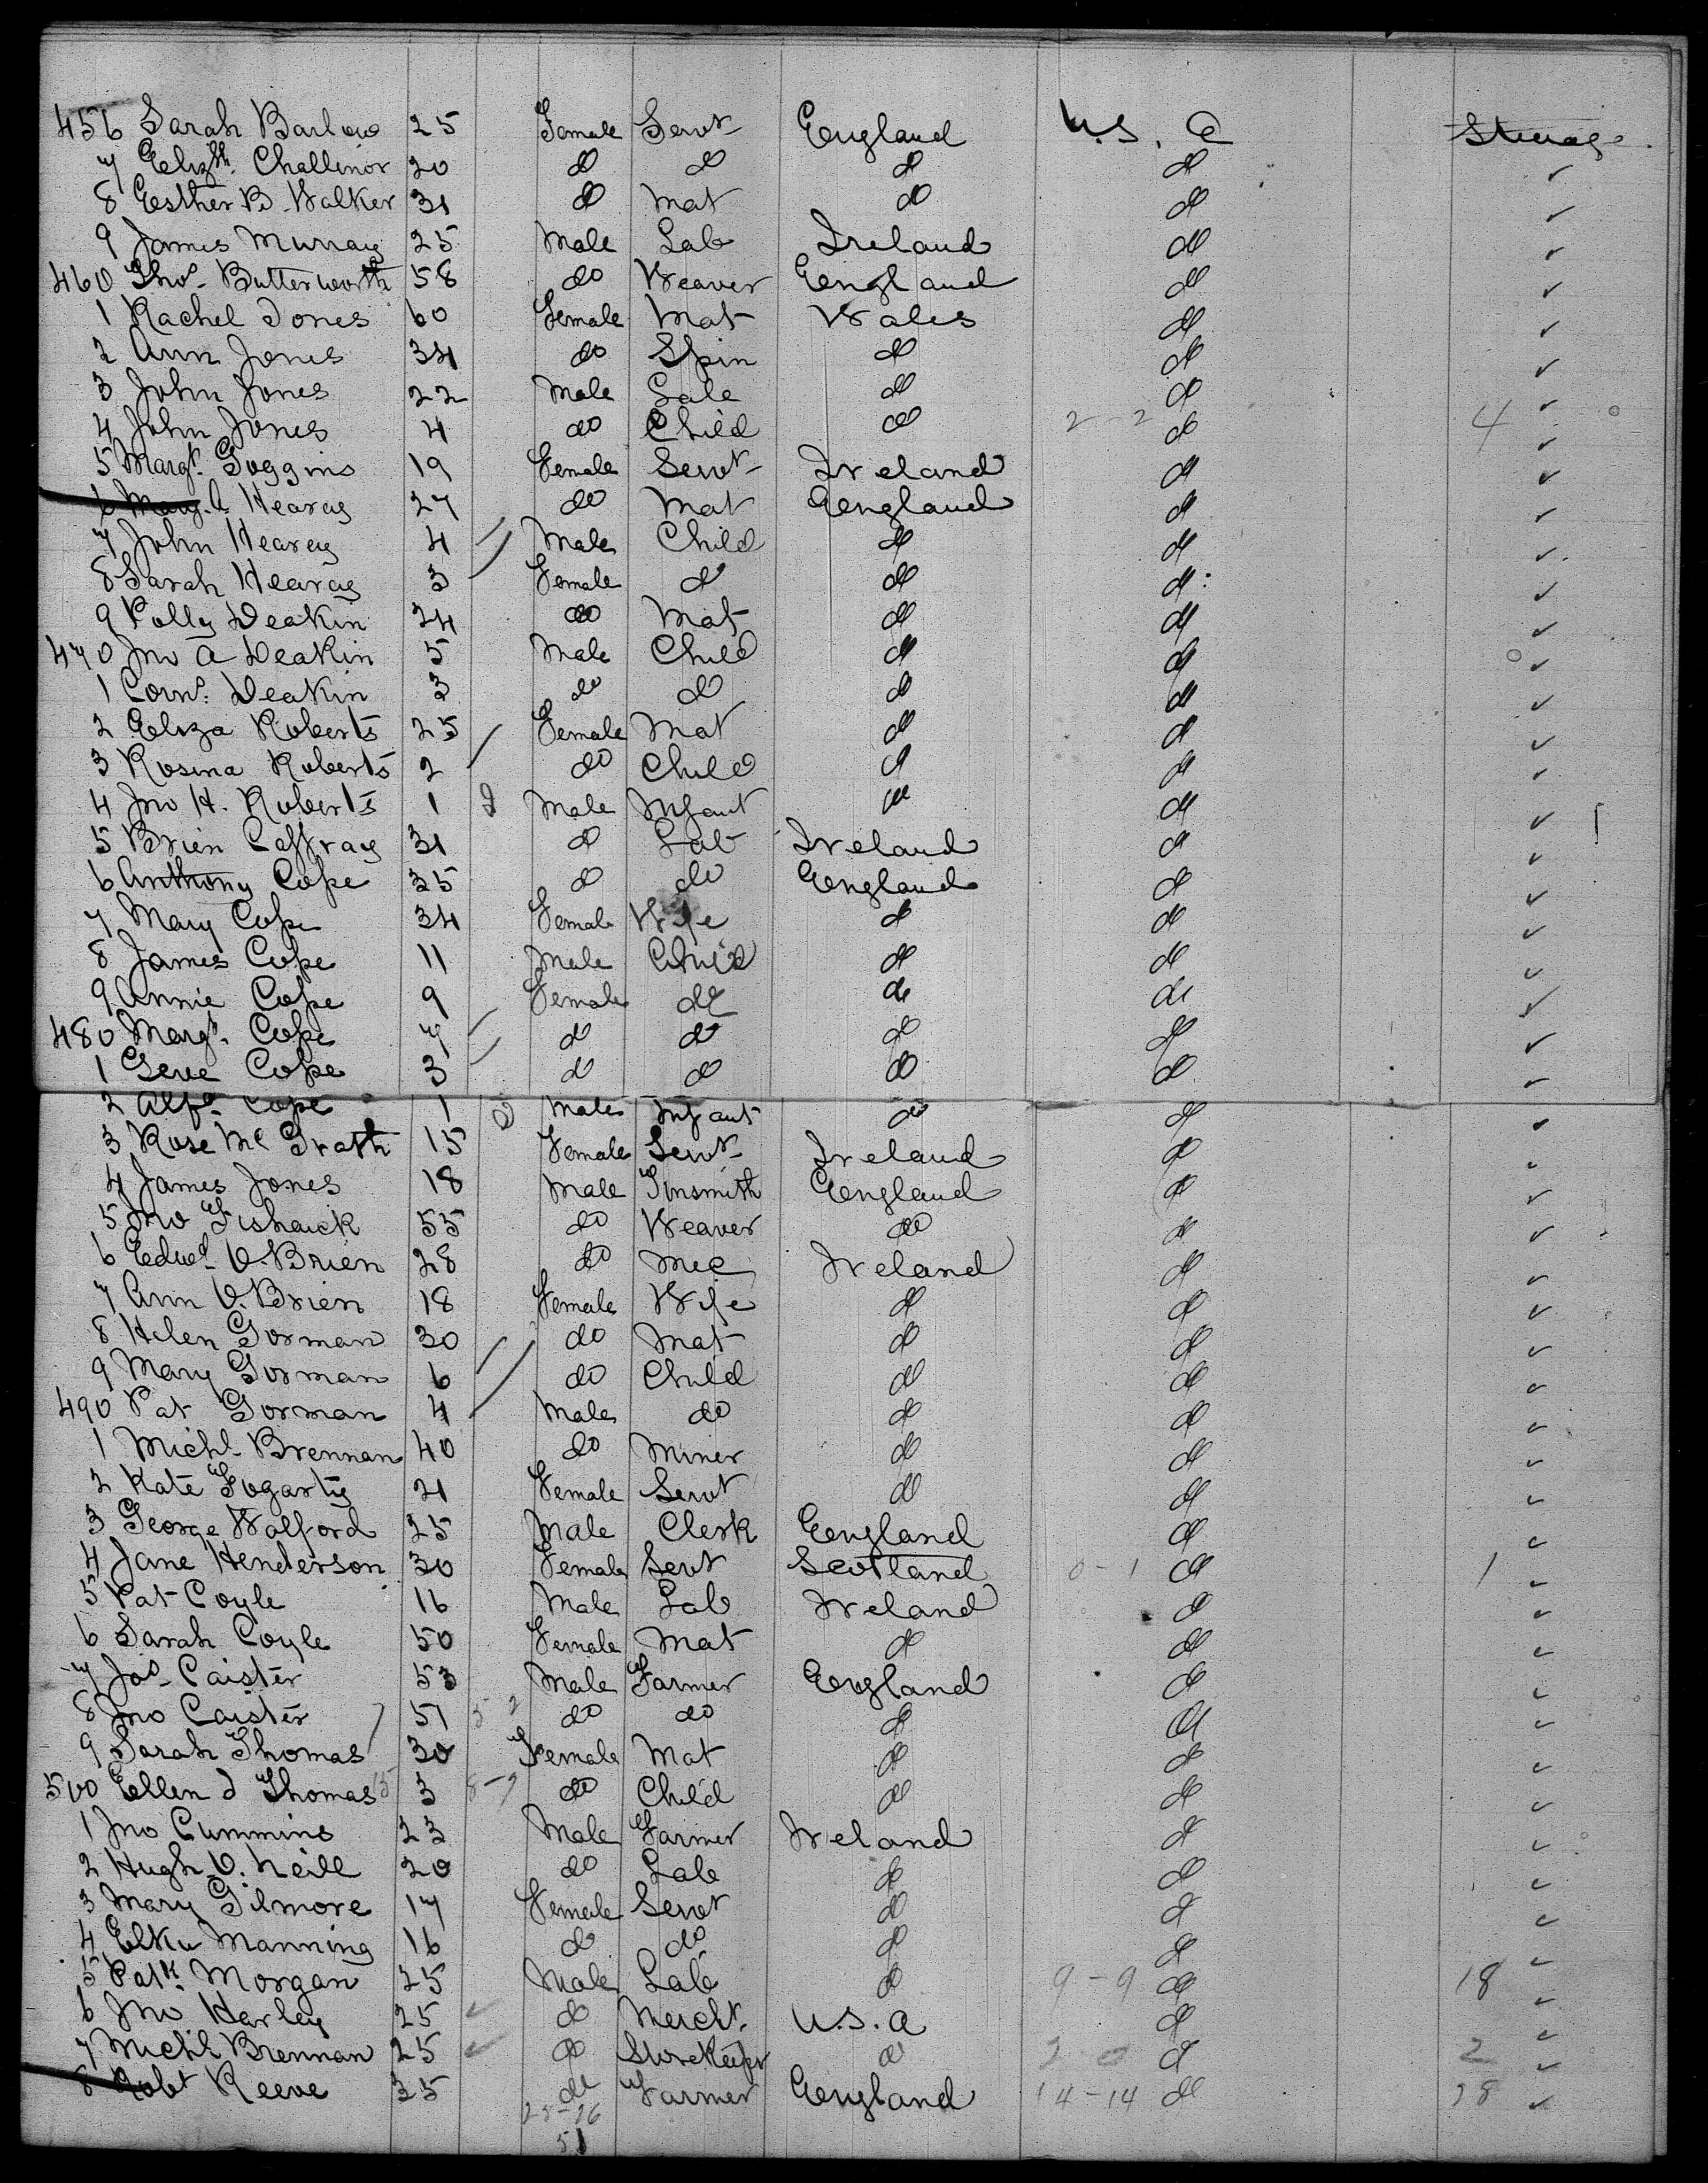 456 Sarah Barlow 25 Female Servt England U.S. A Steerage
7 Elizth. Challinor 20 do do do do
8 Esther B. Walker 31 do Mat do do
9 James Murray 25 Male Lab Ireland do
460 Thos. Butterworth 58 do Weaver England do
1 Rachel Jones 60 Female Mat Wales do
2 Ann Jones 34 do Spin do do
3 John Jones 22 Male Lab do do
4 John Jones 4 do Child do 2-2 do 4
5 Margt. Goggins 19 Female Servt Ireland do
6 Mary. A. Hearey 27 do Mat England do
7 John Hearey 4 Male Child do do
8 Sarah Hearey 3 Female do do do
9 Polly Deakin 24 do Mat do do
470 Jno A Deakin 5 Male Child do do
1 Corns. Deakin 3 do do do do
2 Eliza Roberts 25 Female Mat do do
3 Rosina Roberts 2 do Child do do
4 Jno H. Roberts 1 Male Infant do do 1
5 Brien Caffray 31 do Lab Ireland do
6 Anthony Cope 35 do do England do
7 Mary Cope 34 Female Wife do do
8 James Cope 11 Male Child do do
9 Annie Cope 9 Female do do do
480 Margt. Cope 7 do do do do
1 Cope 3 do do do do
2 Alfd. Cope 1 Male Infant do do
3 Rose Mc Grath 15 Female Servt Ireland do
4 James Jones 18 Male Tinsmith England do
5 Jno Fishwick 55 do Weaver do do
6 Edwd. O.Brien 28 do Mec Ireland do
7 Ann O.Brien 18 Female Wife do do
8 Helen Gorman 30 do Mat do do
9 Mary Gorman 6 do Child do do
490 Pat Gorman 4 Male do do do
1 Michl. Brennan 40 do Miner do do
2 Kate Fogarty 21 Female Servt do do
3 George Walford 25 Male Clerk England do
4 Jane Henderson 30 Female Servt Scotland 0-1 do 1
5 Pat Coyle 16 Male Lab Ireland do
6 Sarah Coyle 50 Female Mat do do
7 Jos. Caister 53 Male Farmer England do
8 Jno Caister 51 do do do do
9 Sarah Thomas 30 Female Mat do do
500 Ellen J Thomas 3 do Child do do
1 Jno Cummins 23 Male Farmer Ireland do
2 Hugh O. Neill 20 do Lab do do
3 Mary Gilmore 17 Female Servt do do
4 Manning 16 do do do do
5 Patk. Morgan 25 Male Lab do 9-9 do 18
6 Jno Harley 25 do Mercht. U.S.A do
7 Michl Brennan 25 do Storekeeper do 2-0 do 2
8 Robt Reeve 35 do Farmer England 14-14 do 28
25-26
51